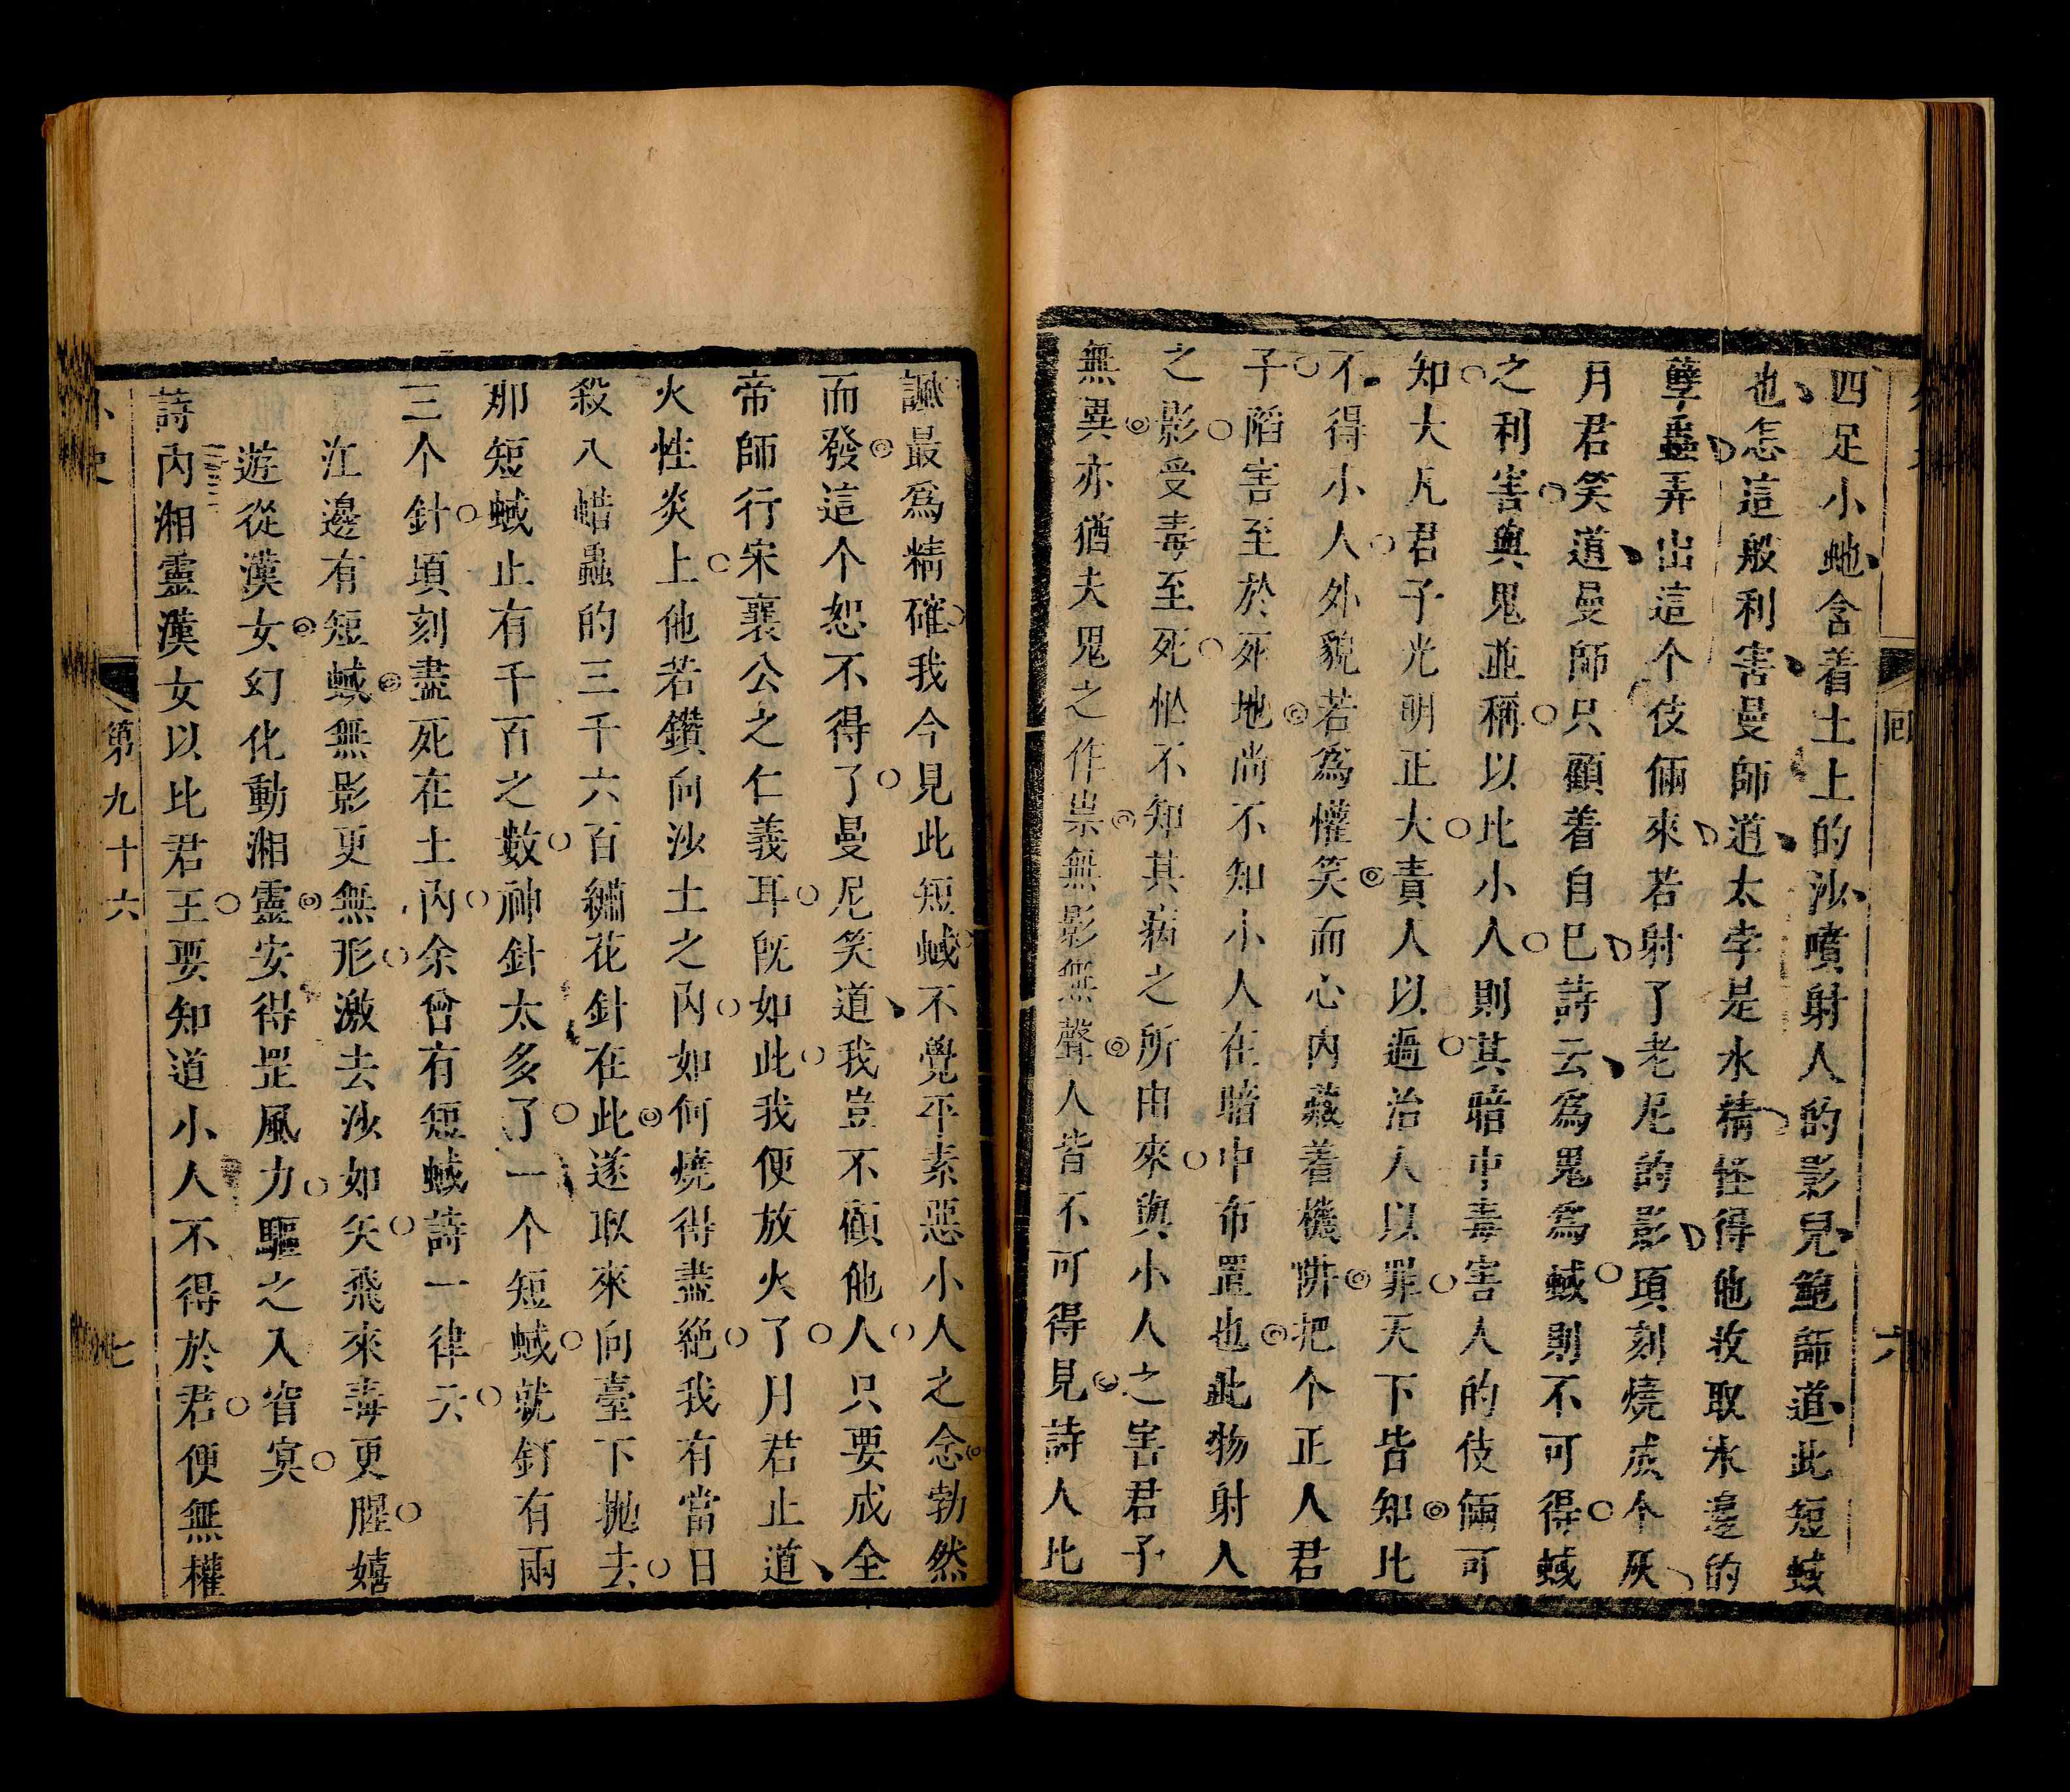 四足小虵含着土上的沙噴射人的影兒鮑師道此短蜮
也怎這般利害曼師道太孛是水精怪得他收取水邊的
孽蟲弄出這个伎倆來若射了老尼的影頃刻燒成个灰
月君笑道曼師只顧着自已詩云爲鬼爲蜮則不可得蜮
之利害與鬼並稱以比小人則其暗中毒害人的伎倆可
知大凡君子光明正大責人以過治人以罪天下皆知比
不得小人外貌若爲懽笑而心內藏着機阱把个正人君
子陷害至於死地尚不知小人在暗中布置也此物射人
之影受毒至死忪不知其病之所由來與小人之害君子
無異亦猶夫鬼之作祟無影無聲人皆不可得見詩人比
諷最爲精確我今見此短蜮不覺平素惡小人之念勃然
而發這个恕不得了曼尼笑道我豈不顧他人只要成全
帝師行宋襄公之仁義耳旣如此我便放火了月君止道
火性炎上他若鑽向沙土之內如何燒得盡絕我有當日
殺八蜡蟲的三千六百繡花針在此遂取來向臺下拋去
那短蜮止有千百之數神針太多了一个短蜮就釘有兩
三个針頃刻盡死在土內余曾有短蜮詩一律云
江邊有短蜮無影更無形激去沙如矢飛來毒更腥嬉
遊從漢女幻化動湘靈安得罡風力驅之入窅冥
詩內湘靈漢女以比君王要知道小人不得於君便無權
第九十六
七
回
六